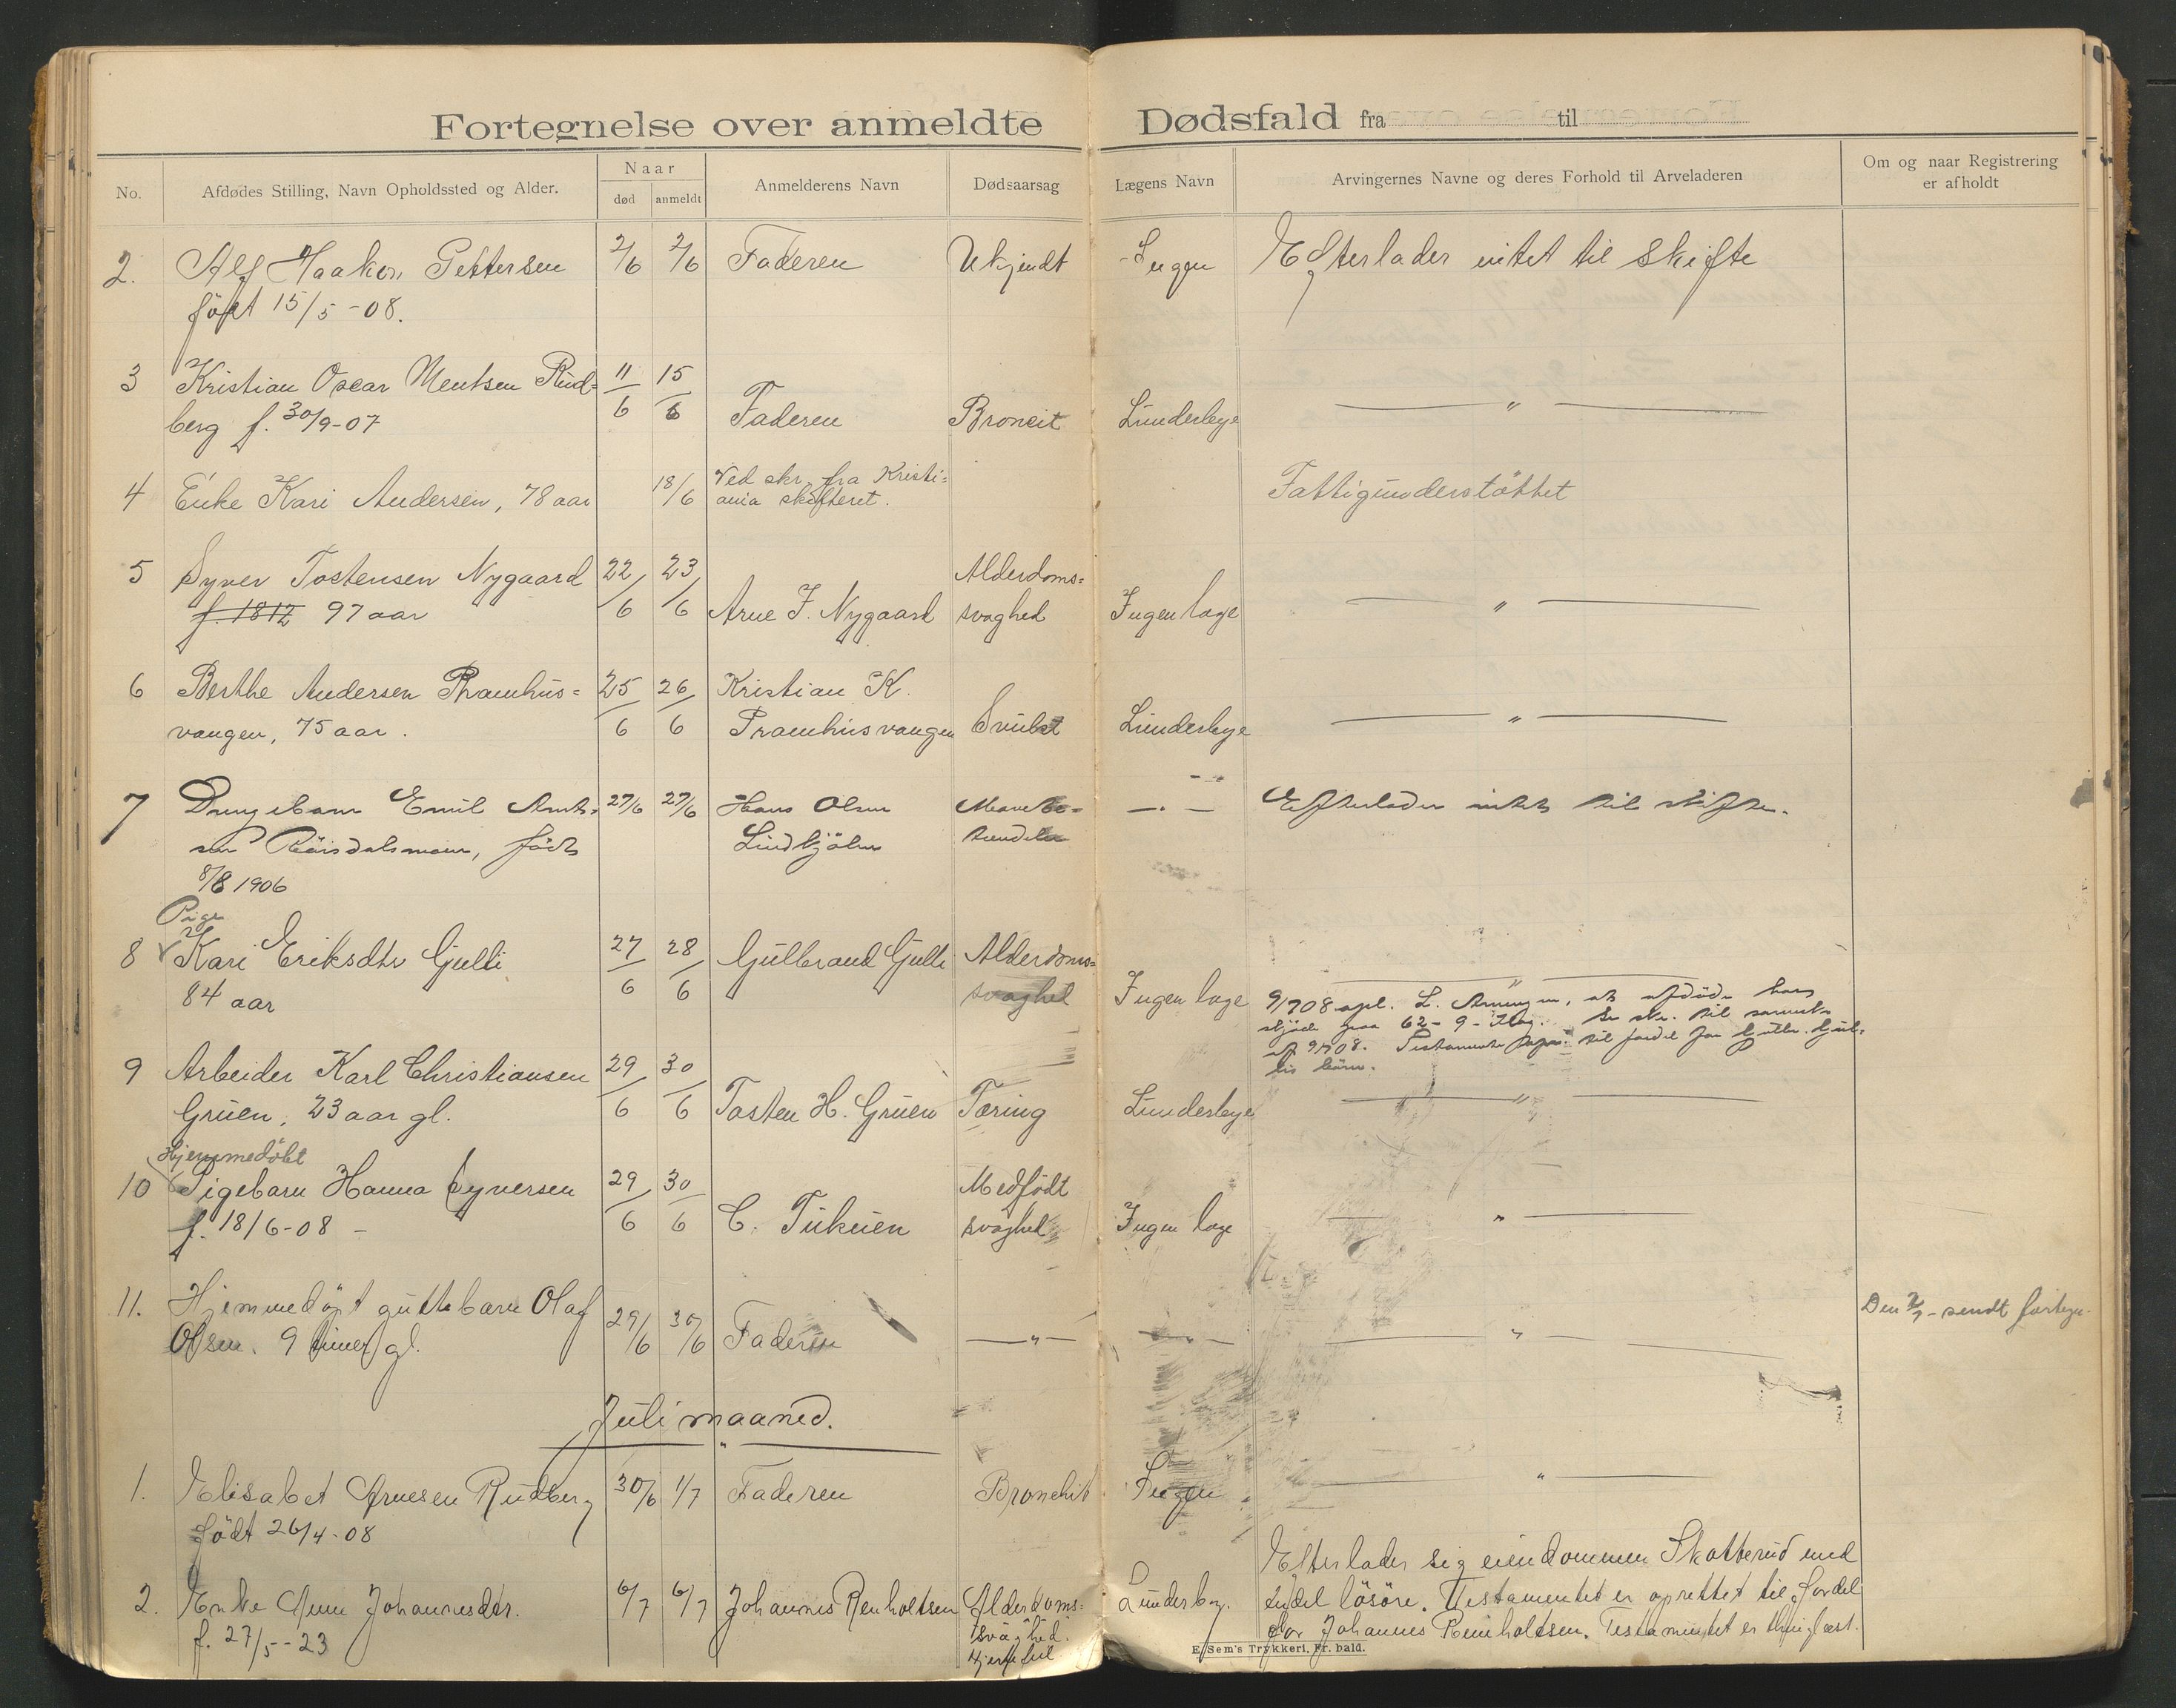 Fortegnelse over anmeldte Dødsfald fra til
No. Afdødes Stilling, Navn Opholdssted og Alder. Naar død anmeldt Anmelderens Navn Dødsaarsag Lægens Navn Arvingernes Navne og deres Forhold til Arveladeren Om og naar Registrering er afholdt
2. Alf Haakon Pettersen 2/6 2/6 Faderen Ukjendt Ingen Efterlader intet til skifte
født 15/5-08.
3 Kristian Oscar Mentsen Rud= 11/6 15/6
berg f. 30/9-07 Faderen Broncit Lunderbye — " —
4 Enke Kari Andersen, 78 aar 18/6 Ved skr. fra Kristi=
ania skifteret. Fattigunderstöttet
5 Syver Tostensen Nygaard 22/6 23/6 Alderdoms=
f. 1812 97 aar Arne J. Nygaard svaghed Ingen læge — " —
6 Berthe Andersen Pramhus= 25/6 26/6 Kristian K.
vangen, 75 aar. Pramhusvangen Svulst Lunderbye — " —
7 Drengebarn Emil 27/6 27/6 Hans Olsen Mavebe= — " — Efterlader intet til skifte.
født Lindkjölen tændelse
8/8 1906
Pige
8 Kari Eriksdtr Gjulli 27/6 28/6 Gulbrand Gjulli Alderdoms= — " —
84 aar svaghed Ingen læge 9/7 08 opl. L. at afdöde har
skjöde paa 62-9- til
af 9/7 08. til fordel for
börn.
9 Arbeider Karl Christiansen 29/6 30/6
Gruen, 23 aar gl. Tosten H. Gruen Tæring Lunderbye — " —
Hjemmedöbt
10 Pigebarn Hanna Syversen 29/6 30/6 Medfödt
f. 18/6-08 - C. svaghed Ingen læge — " —
11. Hjemmedöpt guttebarn Olaf 29/6 30/6 Den 2/7 - sendt fortegn.
Olsen. 9 timer gl. Faderen — " — — " — — " —
Juli maaned.
1. Elisabet Arnesen Rudberg 30/6 1/7 Faderen Bronchit Ingen — " —
född 26/4-08
Efterlader sig eiendommen Skotterud med
2. Enke Anne Johannesdtr. 6/7 6/7 Johannes Renholtsen Alderdoms= Lunderby. endel lösöre. Testamentet er oprettet til fordel
f. 27/5-23 svaghed. for Johannes Reinholtsen. Testamentet er thinglæst.
Hjertefeil
E. Sem's Trykkeri, Fr. hald.